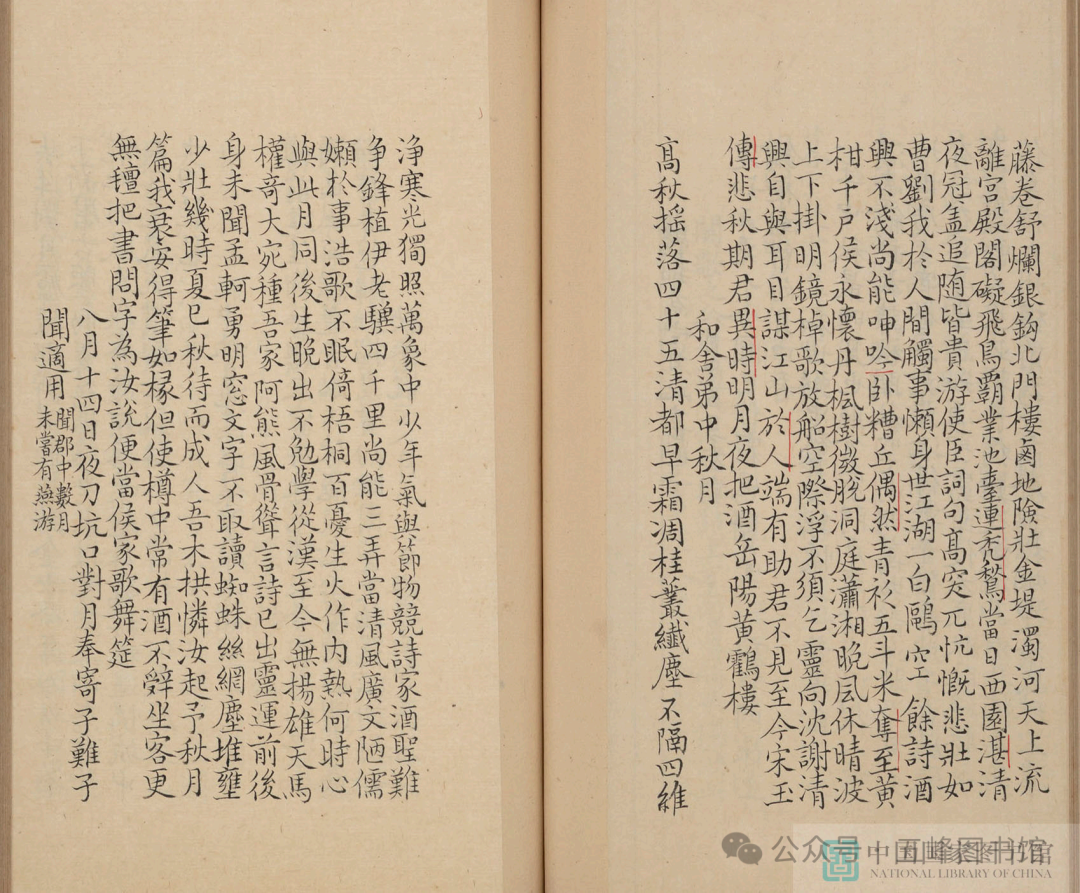 藤卷舒爛銀鈎北門樓鹵地險壯金堤濁河天上流
離宮殿閣礙飛鳥覇業池臺連禿鶖當日西園湛清
夜冠盖追随皆貴游使臣詞句髙突兀忼慨悲壯如
曹劉我於人間觸事懶身世江湖一白鷗空餘詩酒
興不淺尚能呻吟卧糟丘偶然青衫五斗米奪至黄
柑千戸侯永懷丹楓樹微脫洞庭瀟湘晚風休晴波
上下掛明鏡棹歌放船空際浮不須乞靈向沈謝清
興自與耳目謀江山於人端有助君不見至今宋玉
傳悲秋期君異時明月夜把酒岳陽黄鶴樓
和舍弟中秋月
髙秋揺落四十五清都早霜凋桂叢纎塵不隔四維
浄寒光獨照萬象中少年氣與節物競詩家酒聖難
争鋒植伊老驥四千里尚能三弄當清風廣文陋儒
嬾於事浩歌不眠倚梧桐百憂生火作内熱何時心
與此月同後生晚出不勉學從漢至今無揚雄天馬
權竒大宛種吾家阿熊風骨聳言詩已出靈運前後
身未聞孟軻勇明窓文字不取讀蜘蛛絲網塵堆壅
少壯幾時夏已秋待而成人吾木拱憐汝起予秋月
篇我衰安得筆如椽但使樽中常有酒不辤坐客更
無氊把書問字為汝說便當侯家歌舞筵
八月十四日夜刀坑口對月奉寄子難子
聞適用聞郡中數月
未嘗有燕游
公众号·中国五峰图书馆
中国国家图书馆
NATIONAL LIBRARY OF CHINA